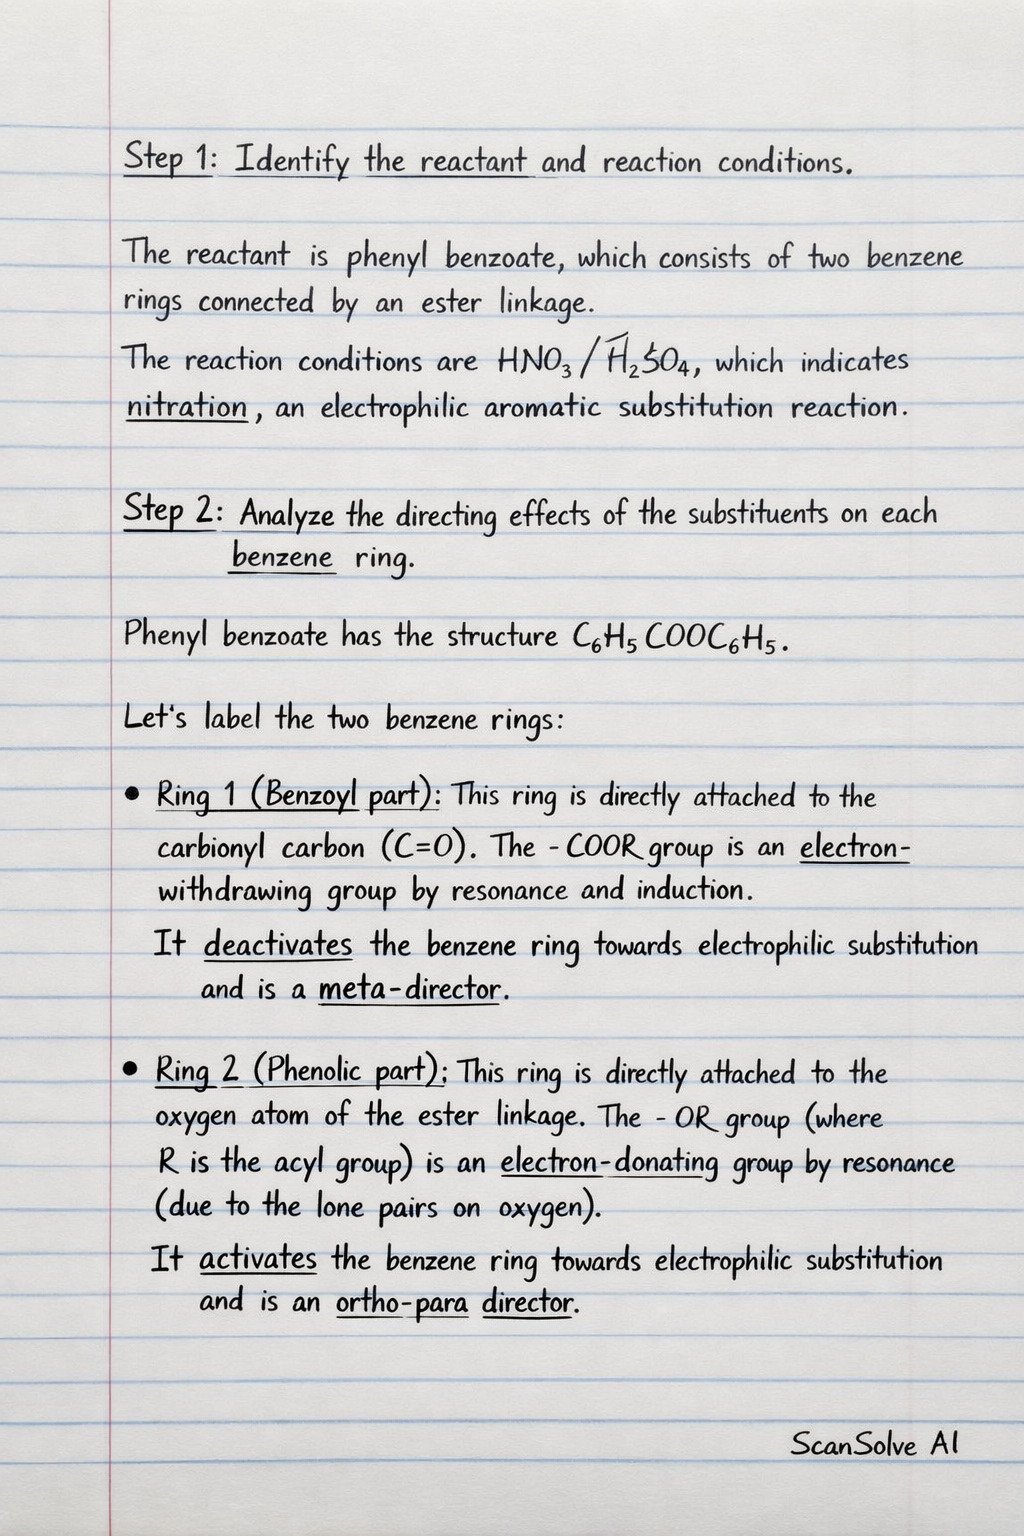 Step 1: Identify the reactant and reaction conditions.
The reactant is phenyl benzoate, which consists of two benzene
rings connected by an ester linkage.
The reaction conditions are HNO₃/H₂SO₄, which indicates
nitration, an electrophilic aromatic substitution reaction.
Step 2: Analyze the directing effects of the substituents on each
benzene ring.
Phenyl benzoate has the structure C₆H₅COOC₆H₅.
Let's label the two benzene rings:
• Ring 1 (Benzoyl part): This ring is directly attached to the
carbionyl carbon (C=O). The -COOR group is an electron-
withdrawing group by resonance and induction.
It deactivates the benzene ring towards electrophilic substitution
and is a meta-director.
• Ring 2 (Phenolic part); This ring is directly attached to the
oxygen atom of the ester linkage. The -OR group (where
R is the acyl group) is an electron-donating group by resonance
(due to the lone pairs on oxygen).
It activates the benzene ring towards electrophilic substitution
and is an ortho-para director.
ScanSolve AI